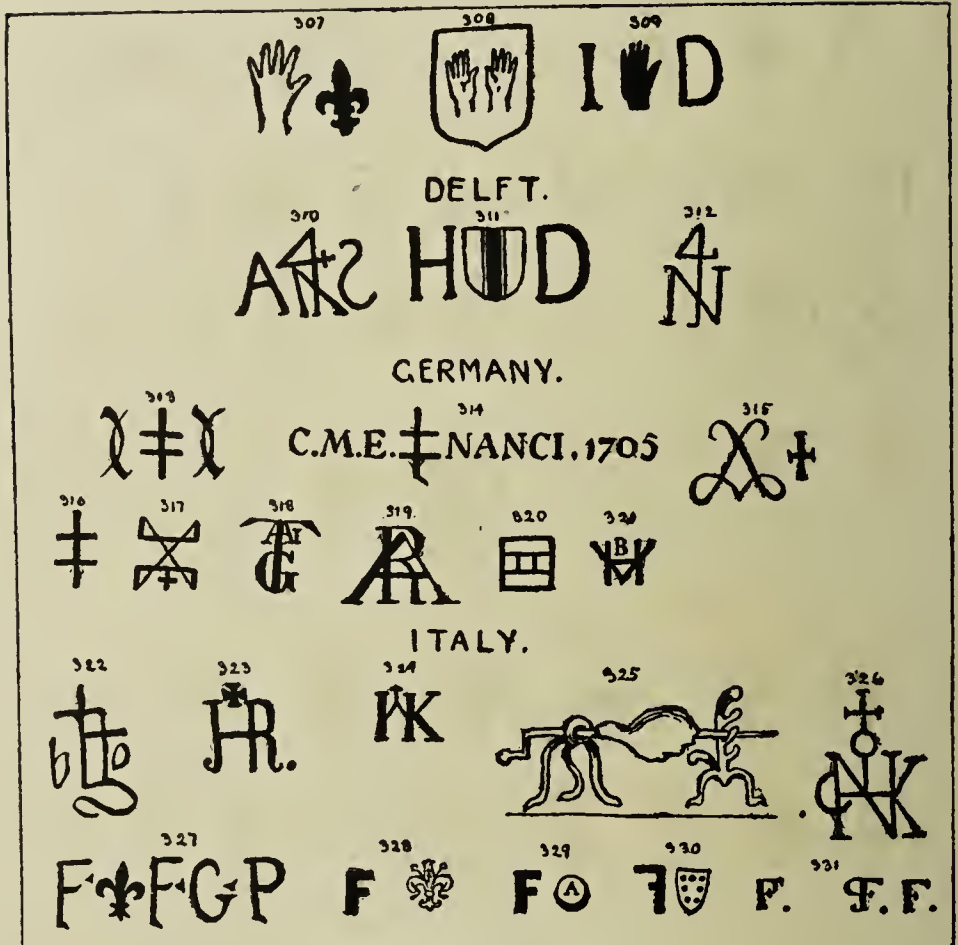 307 308 309
I D
DELFT.
310 311 312
H D
GERMANY.
313 314 315
C.M.E. NANCI. 1705
316 317 318 319 320 321
ITALY.
322 323 324 325 326
327 328 329 330 331
F F G P F F A F F. F. F.